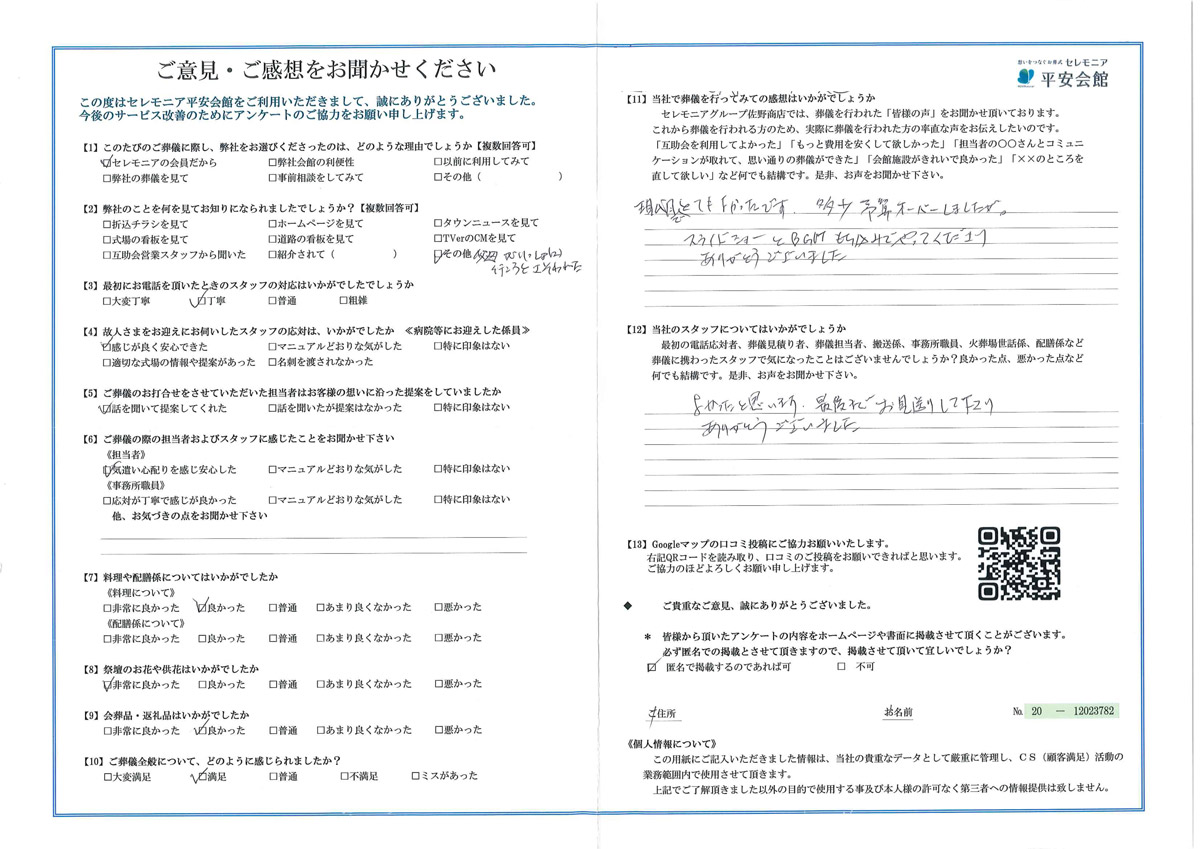 ご意見・ご感想をお聞かせください
この度はセレモニア平安会館をご利用いただきまして、誠にありがとうございました。
今後のサービス改善のためにアンケートのご協力をお願い申し上げます。
【1】このたびのご葬儀に際し、弊社をお選びくださったのは、どのような理由でしょうか【複数回答可】
☑セレモニアの会員だから □弊社会館の利便性 □以前に利用してみて
□弊社の葬儀を見て □事前相談をしてみて □その他（ ）
【2】弊社のことを何を見てお知りになられましたでしょうか？【複数回答可】
□折込チラシを見て □ホームページを見て □タウンニュースを見て
□式場の看板を見て □道路の看板を見て □TVerのCMを見て
□互助会営業スタッフから聞いた □紹介されて（ ） ☑その他
【3】最初にお電話を頂いたときのスタッフの対応はいかがでしたでしょうか
□大変丁寧 ☑丁寧 □普通 □粗雑
【4】故人さまをお迎えにお伺いしたスタッフの応対は、いかがでしたか ≪病院等にお迎えした係員≫
☑感じが良く安心できた □マニュアルどおりな気がした □特に印象はない
□適切な式場の情報や提案があった □名刺を渡されなかった
【5】ご葬儀のお打合せをさせていただいた担当者はお客様の想いに沿った提案をしていましたか
☑話を聞いて提案してくれた □話を聞いたが提案はなかった □特に印象はない
【6】ご葬儀の際の担当者およびスタッフに感じたことをお聞かせ下さい
《担当者》
☑気遣い心配りを感じ安心した □マニュアルどおりな気がした □特に印象はない
《事務所職員》
□応対が丁寧で感じが良かった □マニュアルどおりな気がした □特に印象はない
他、お気づきの点をお聞かせ下さい
【7】料理や配膳係についてはいかがでしたか
《料理について》
□非常に良かった ☑良かった □普通 □あまり良くなかった □悪かった
《配膳係について》
□非常に良かった □良かった □普通 □あまり良くなかった □悪かった
【8】祭壇のお花や供花はいかがでしたか
☑非常に良かった □良かった □普通 □あまり良くなかった □悪かった
【9】会葬品・返礼品はいかがでしたか
□非常に良かった ☑良かった □普通 □あまり良くなかった □悪かった
【10】ご葬儀全般について、どのように感じられましたか？
□大変満足 ☑満足 □普通 □不満足 □ミスがあった
想いをつなぐお葬式 セレモニア
平安会館
【11】当社で葬儀を行ってみての感想はいかがでしょうか
セレモニアグループ佐野商店では、葬儀を行われた「皆様の声」をお聞かせ頂いております。
これから葬儀を行われる方のため、実際に葬儀を行われた方の率直な声をお伝えしたいのです。
「互助会を利用してよかった」「もっと費用を安くして欲しかった」「担当者の〇〇さんとコミュニ
ケーションが取れて、思い通りの葬儀ができた」「会館施設がきれいで良かった」「××のところを
直して欲しい」など何でも結構です。是非、お声をお聞かせ下さい。
とてもよかったです、多少予算オーバーしましたが。
スライドショーとBGMも込みでやってくださり
ありがとうございました
【12】当社のスタッフについてはいかがでしょうか
最初の電話応対者、葬儀見積り者、葬儀担当者、搬送係、事務所職員、火葬場世話係、配膳係など
葬儀に携わったスタッフで気になったことはございませんでしょうか？良かった点、悪かった点など
何でも結構です。是非、お声をお聞かせ下さい。
よかったと思います、最後までお見送りして下さり
ありがとうございました
【13】Googleマップの口コミ投稿にご協力お願いいたします。
右記QRコードを読み取り、口コミのご投稿をお願いできればと思います。
ご協力のほどよろしくお願い申し上げます。
◆ ご貴重なご意見、誠にありがとうございました。
＊ 皆様から頂いたアンケートの内容をホームページや書面に掲載させて頂くことがございます。
必ず匿名での掲載とさせて頂きますので、掲載させて頂いて宜しいでしょうか？
☑ 匿名で掲載するのであれば可 □ 不可
ご住所 お名前 № 20 － 12023782
《個人情報について》
この用紙にご記入いただきました情報は、当社の貴重なデータとして厳重に管理し、ＣＳ（顧客満足）活動の
業務範囲内で使用させて頂きます。
上記でご了解頂きました以外の目的で使用する事及び本人様の許可なく第三者への情報提供は致しません。